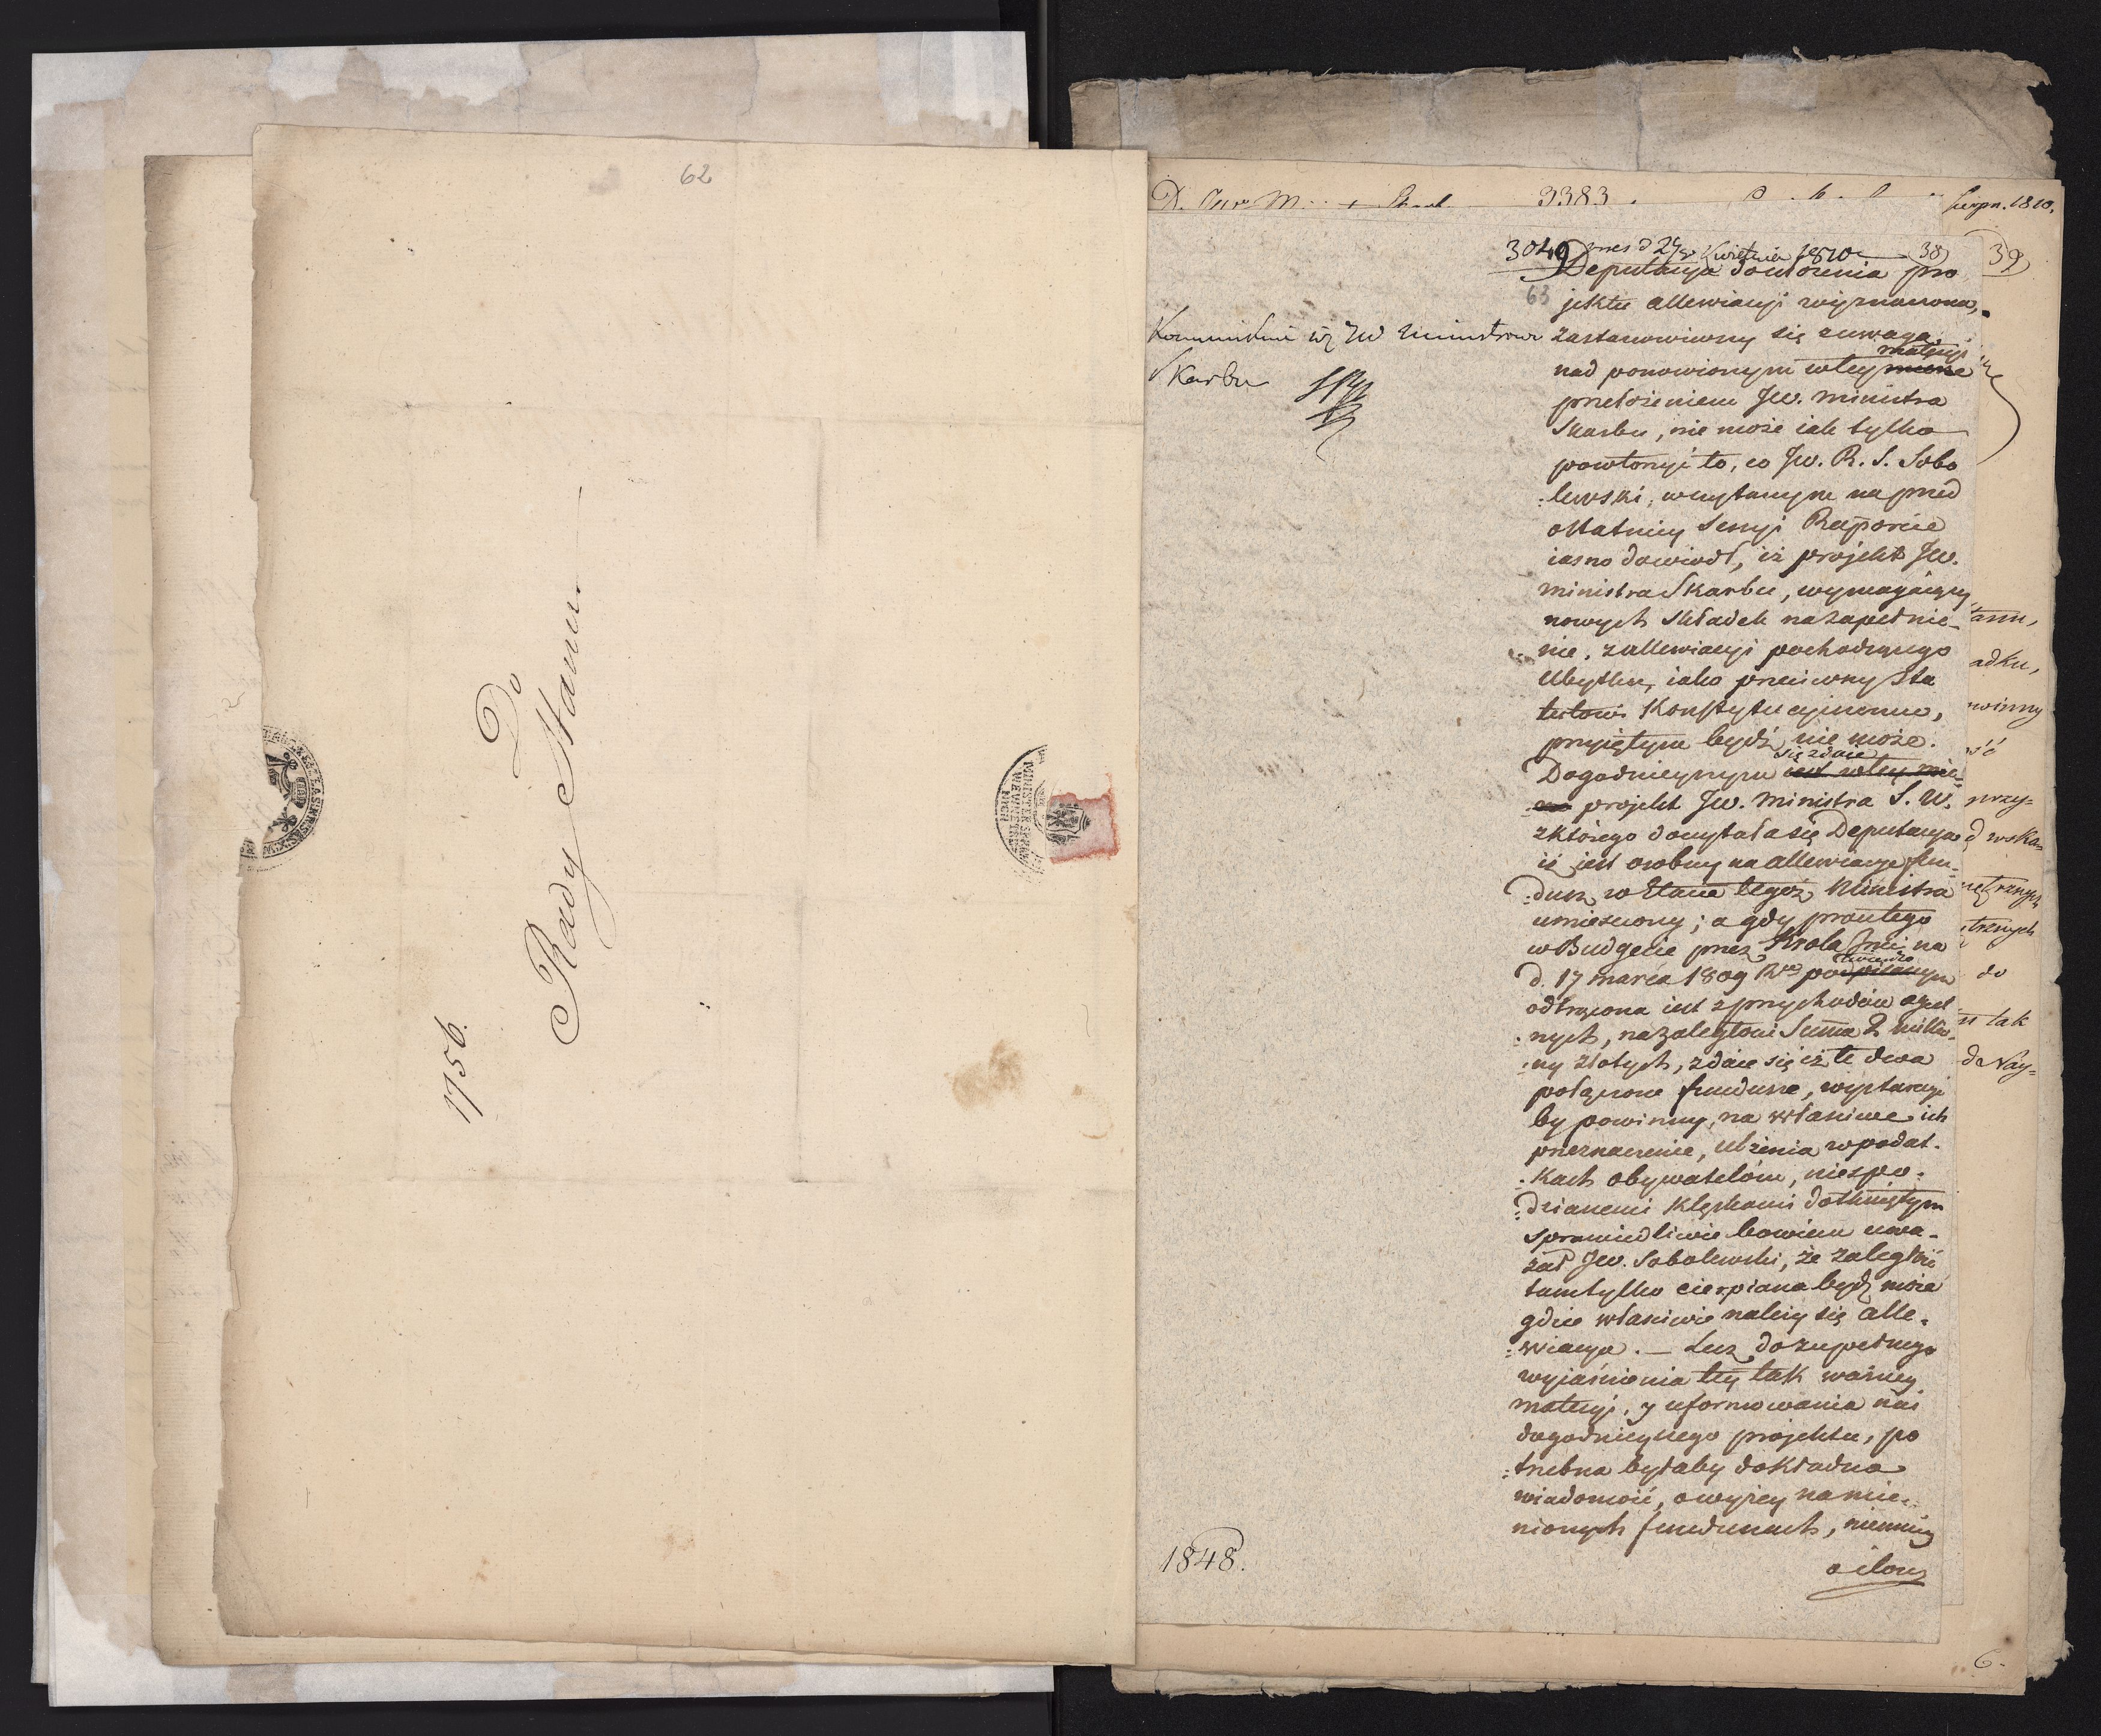 62
Do
Rady Stanu
1756.
MINISTER SPRAW
WEWNETRZ
NYCH
3383.
Sierpn. 1810.
3049 d 24 Kwietnia 1810 38 39
63
Deputacya do ułożenia pro
jektu allewiacyi wyznaczona,
zastanowiwszy się z uwagą
materyi
nad ponowionym w tey mierze
przełożeniem JW. Ministra
Skarbu, nie może iak tylko
powtorzyć to, co JW. R. S. Sobo
:lewski, w czytanym na przed
ostatniey Sessyi Raporcie
iasno dowiodł, iż projekt JW.
Ministra Skarbu, wymagaiący
nowych składek na zapełnie-
:nie, z allewiacyi pochodzącego
ubytku, iako przeciwny Sta
tutowi Konstytucyinemu,
przyiętym bydź nie może.
się zdaie
Dogodnieyszym iest w tey mie-
rze projekt JW. Ministra S. W.
z którego doczytała się Deputacya
iż iest osobny na allewiacye fun-
:dusz w Etacie tegoż Ministra
umieszczony; a gdy prócz tego
w Budgecie przez Krola Jmci na
d. 17 marca 1809 Rku
odtrącona iest z przychodów ogul
:nych, na zaległości Summa 2 millio-
:ny złotych, zdaie się iż te dwa
połączone fundusze, wystarczyć
by powinny, na właściwe ich
przeznaczenie, ulżenia w podat-
:kach obywatelom, niespo-
:dzianemi klęskami dotkniętym
sprawiedliwie bowiem uwa-
żał JW. Sobolewski, że zaległość
tam tylko cierpiana bydź może
gdzie właściwie należy się alle-
:wiacya. — Lecz do zupełnego
wyiaśnienia tey tak ważney
materyi, y uformowania nai
dogodnieyszego projektu, po
:trzebna byłaby dokładna
wiadomość, o wyżey namie-
nionych funduszach, niemniey
o ilości
Kommunikuie się JW Ministrowi
Skarbu
1848.
adku,
winny
ść
przy=
d wska=
nętrznych
trznych
do
tak
do Nay=
6.